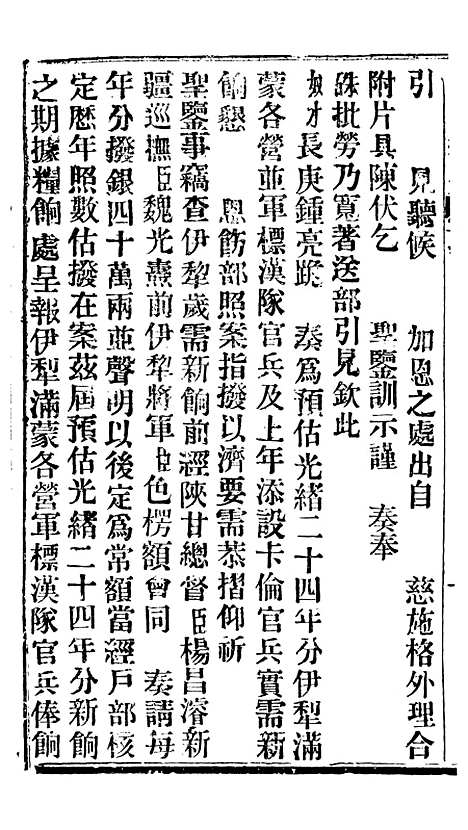 引　見聽候　加恩之處出自　慈施格外理合
附片具陳伏乞　聖鑒訓示謹　奏奉
硃批勞乃寬著送部引見欽此
奴才長庚鍾亮跪　奏爲預估光緒二十四年分伊犁滿
蒙各營並軍標漢隊官兵及上年添設卡倫官兵實需新
餉懇　恩飭部照案指撥以濟要需恭摺仰祈
聖鑒事竊查伊犁歲需新餉前經陝甘總督臣楊昌濬新
疆巡撫臣魏光燾前伊犁將軍臣色楞額會同　奏請每
年分撥銀四十萬兩並聲明以後定爲常額當經戶部核
定歷年照數估撥在案茲屆預估光緒二十四年分新餉
之期據糧餉處呈報伊犁滿蒙各營軍標漢隊官兵俸餉